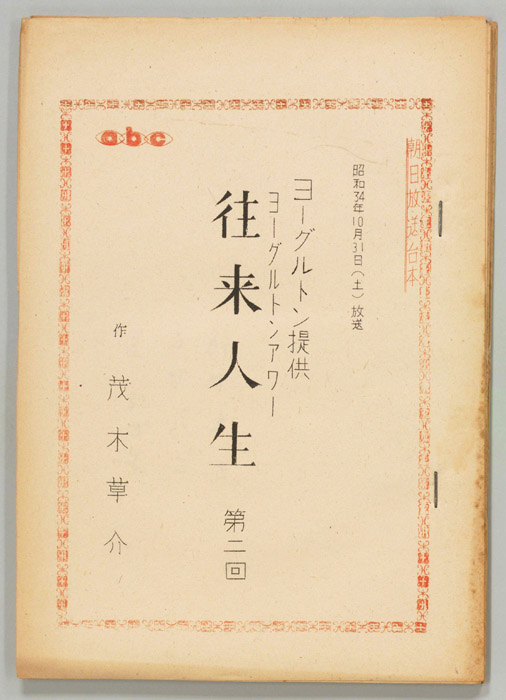 朝日放送台本
abc
昭和34年10月31日(土)放送
ヨーグルトン提供
ヨーグルトンアワー
往来人生
第二回
作 茂木草介